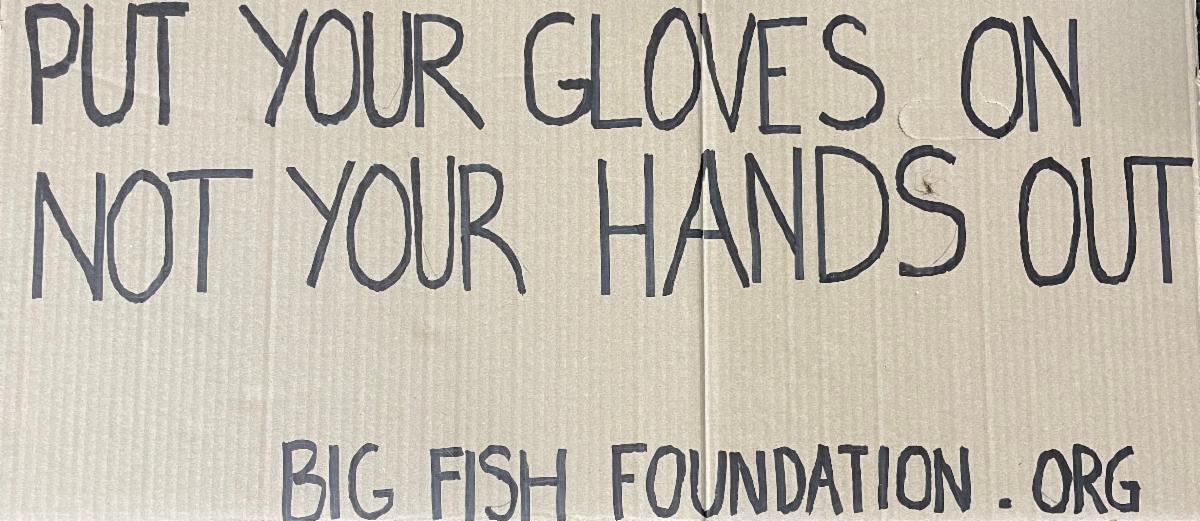 PUT YOUR GLOVES ON
NOT YOUR HANDS OUT
BIG FISH FOUNDATION.ORG